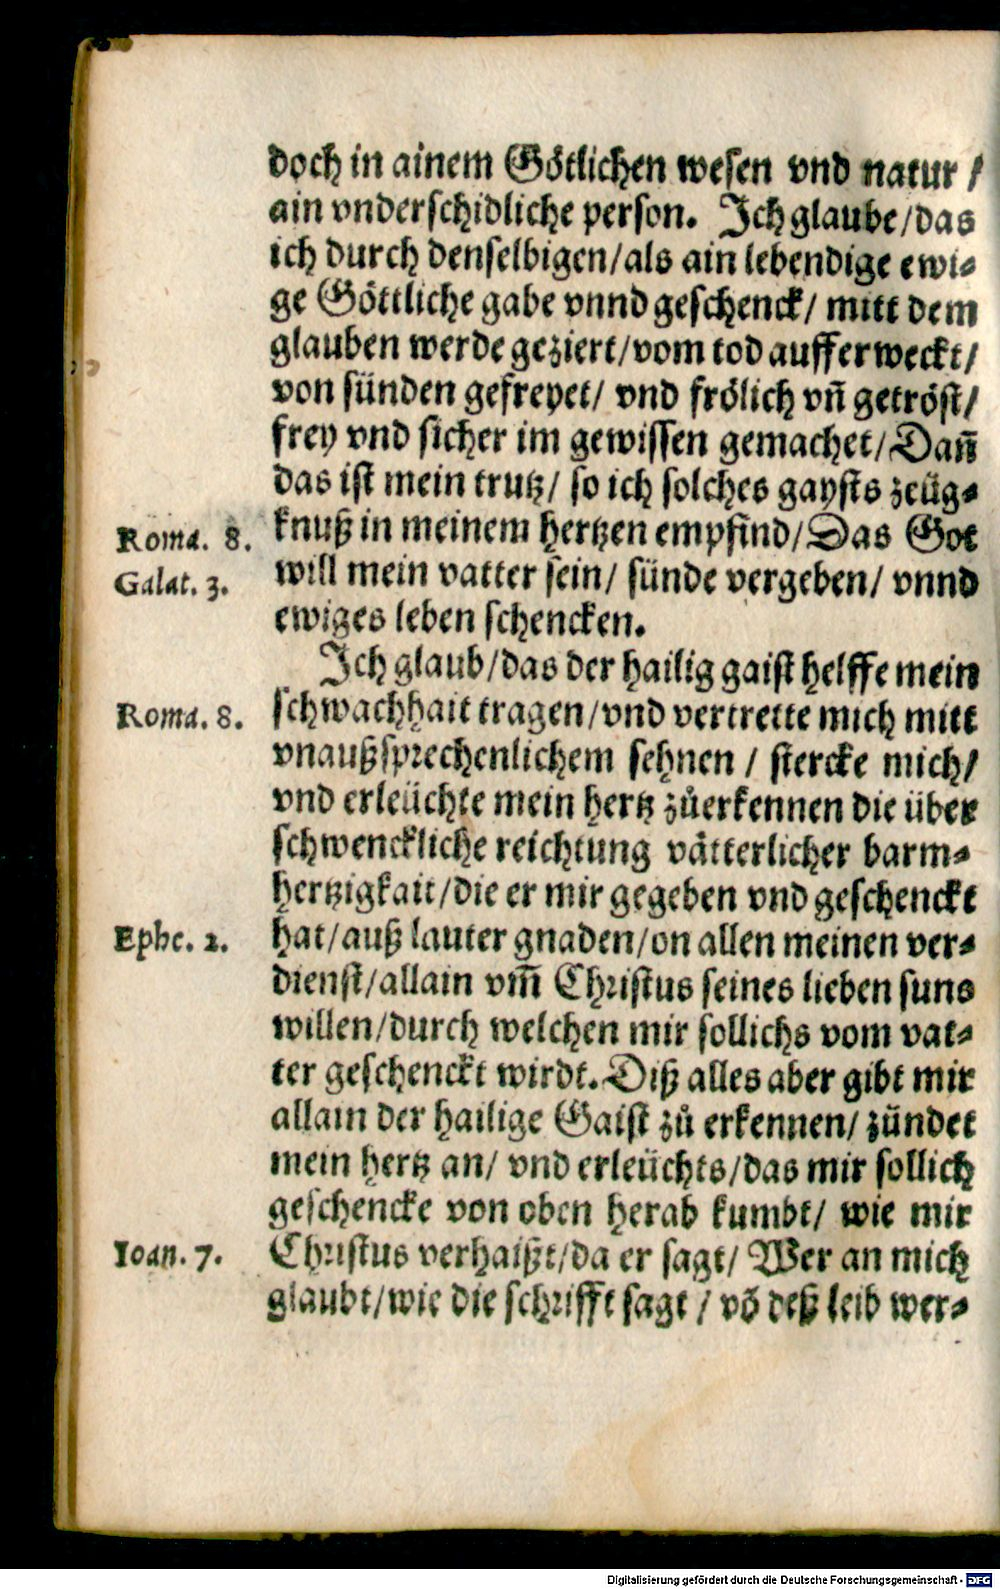 doch in ainem Götlichen wesen vnd natur /
ain vnderschidliche person. Ich glaube/das
ich durch denselbigen/als ain lebendige ewi⸗
ge Göttliche gabe vnnd geschenck/ mitt dem
glauben werde geziert/vom tod aufferweckt/
von sünden gefreyet/ vnd frölich vñ getröst/
frey vnd sicher im gewissen gemachet/Dañ
das ist mein trutz/ so ich solches gaysts zeüg⸗
Roma. 8. knuß in meinem hertzen empfind/Das Got
Galat. 3. will mein vatter sein/ sünde vergeben/ vnnd
ewiges leben schencken.
Ich glaub/das der hailig gaist helffe mein
Roma. 8. schwachhait tragen/vnd vertrette mich mitt
vnaußsprechenlichem sehnen / stercke mich/
vnd erleüchte mein hertz zůerkennen die über
schwenckliche reichtung vätterlicher barm⸗
hertzigkait/die er mir gegeben vnd geschenckt
Ephe. 2. hat/auß lauter gnaden/on allen meinen ver⸗
dienst/allain vm̃ Christus seines lieben suns
willen/durch welchen mir sollichs vom vat⸗
ter geschenckt wirdt. Diß alles aber gibt mir
allain der hailige Gaist zů erkennen/ zündet
mein hertz an/ vnd erleüchts/das mir sollich
geschencke von oben herab kumbt/ wie mir
Ioan. 7. Christus verhaißt/da er sagt/ Wer an mich
glaubt/wie die schrifft sagt / võ deß leib wer⸗
Digitalisierung gefördert durch die Deutsche Forschungsgemeinschaft - DFG